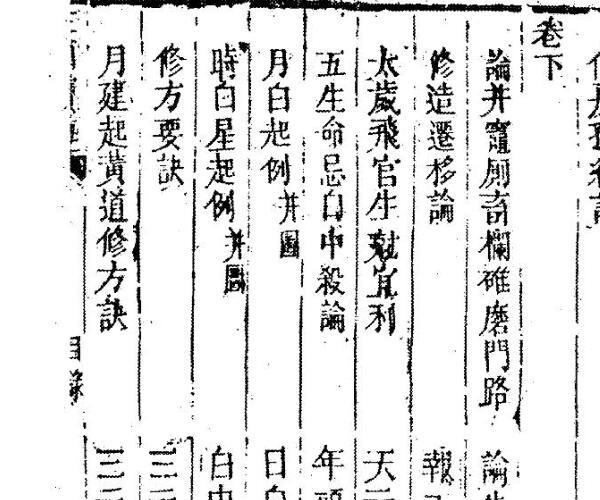 卷下
論井竈厠畜欄碓磨門路
修造遷移論
太歲飛官生尅宜利
五生命忌白中殺論
月白起例并圖
時白星起例并圖
修方要訣
月建起黃道修方訣
目錄
論
報
天
年
日白
白中
三
三